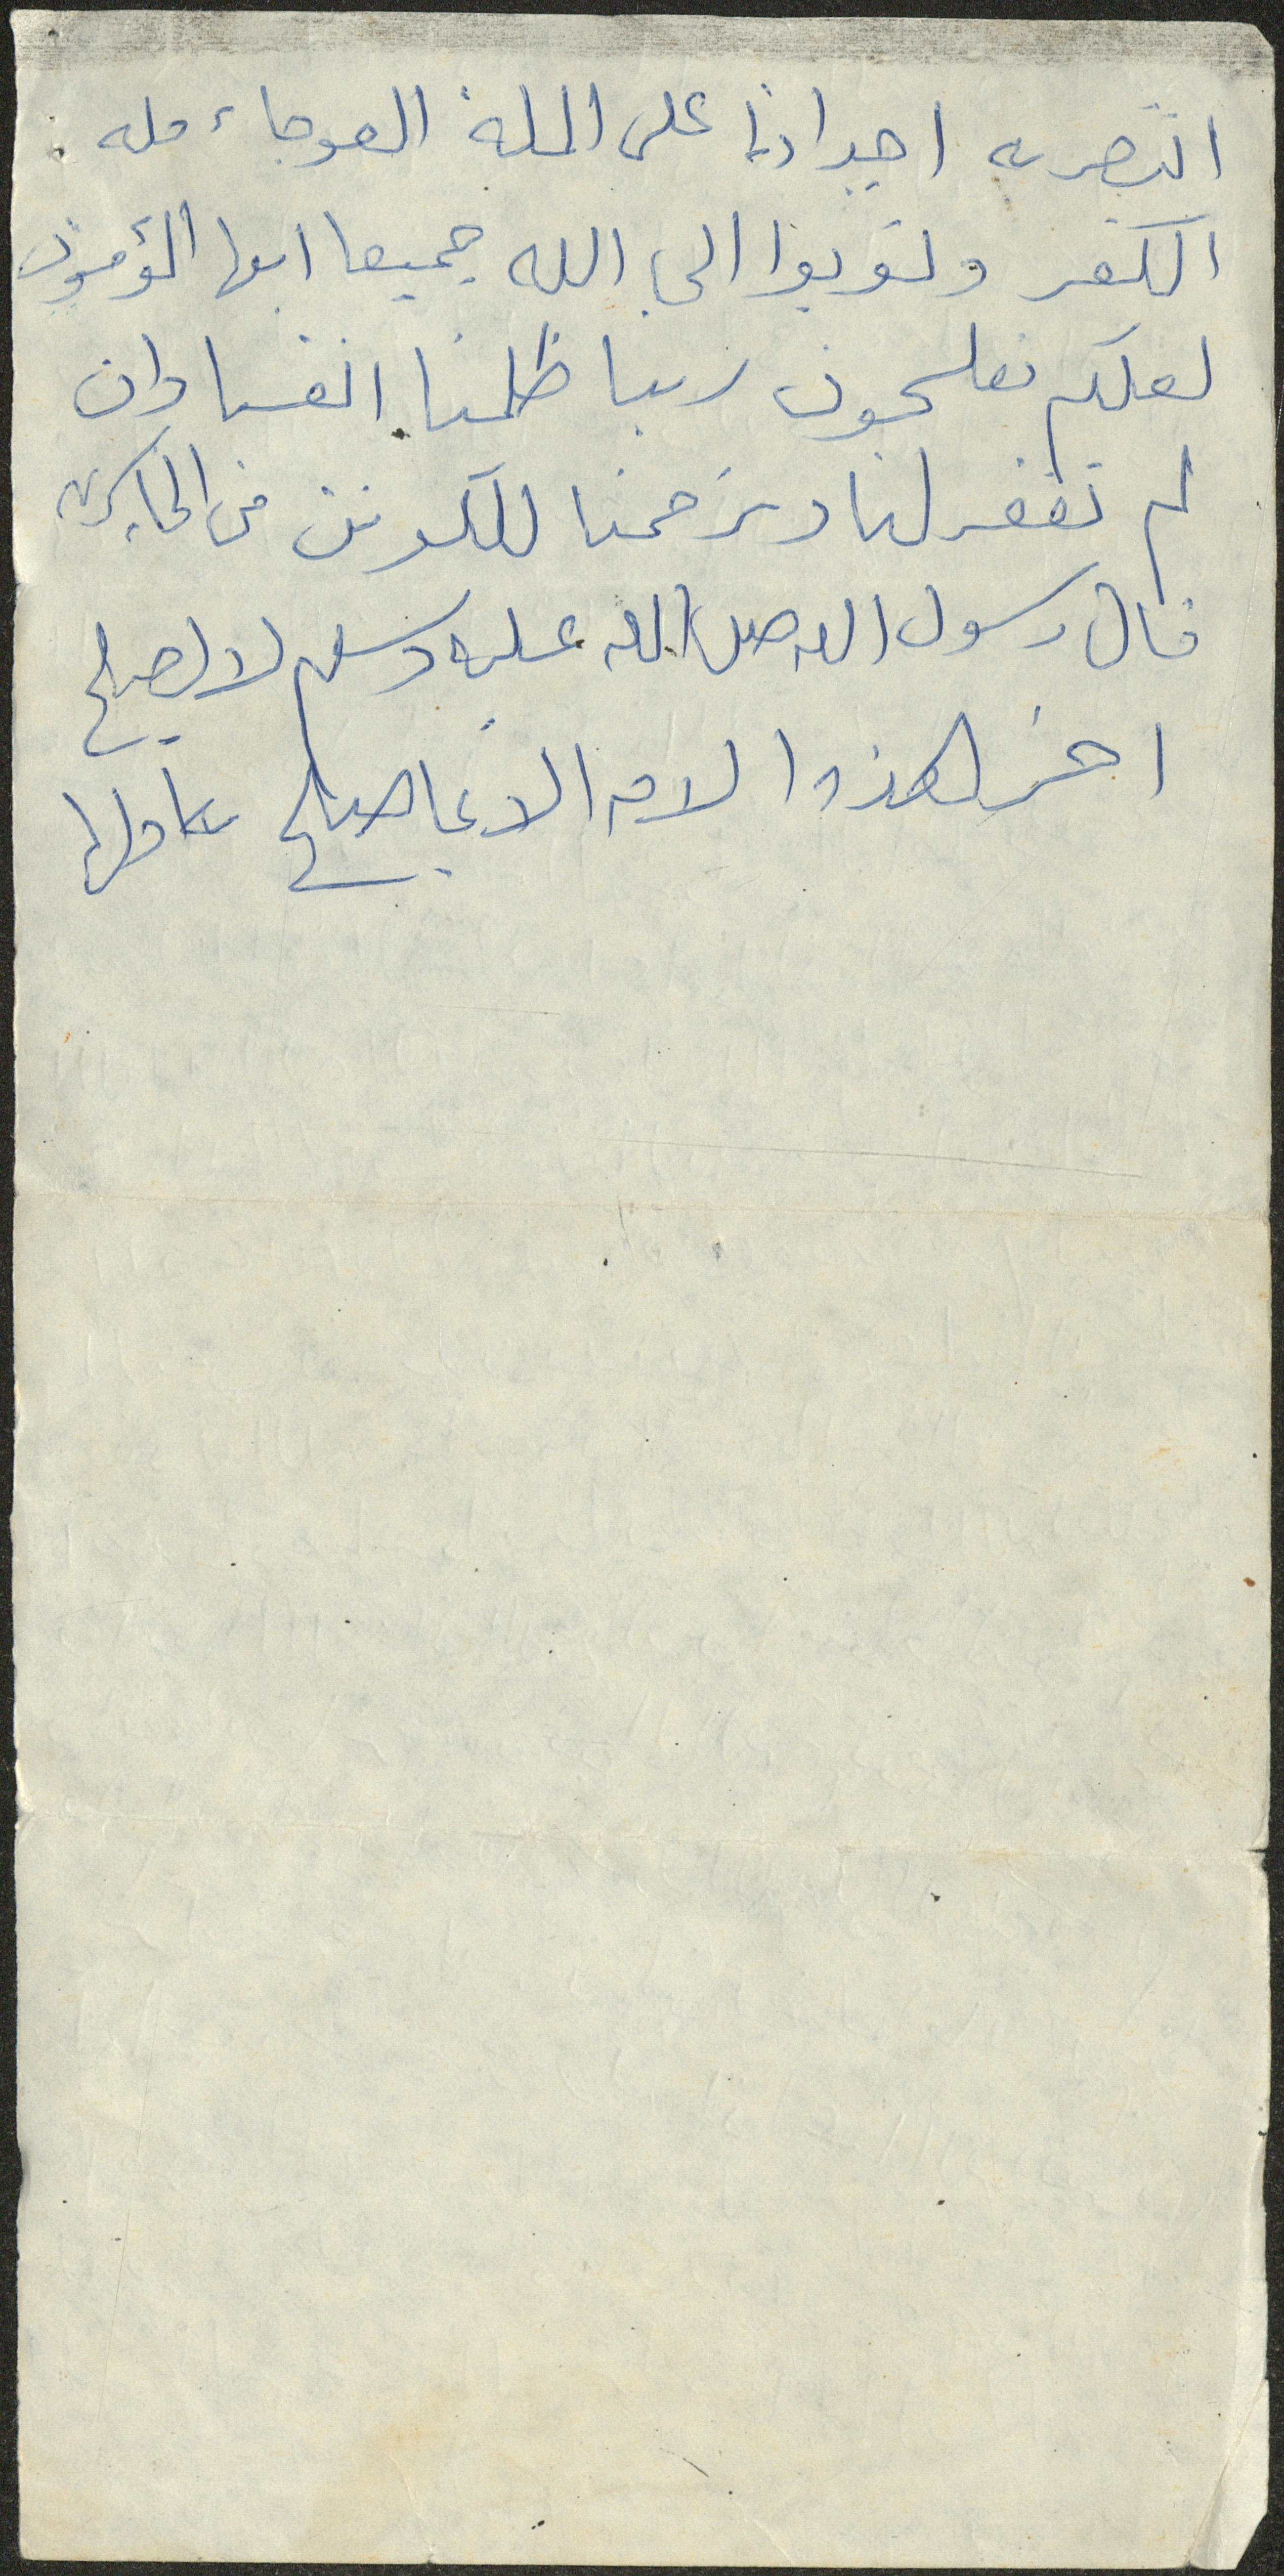 انتصر به اجدادنا على الملة العوجاء مله
الكفر وتوبوا الى الله جميعا ايها المؤمون
لعلكم تفلحون ربنا ظلمنا انفسنا وان
لم تغفر لنا وترحمنا لنكونن من الخاسرين
قال رسول الله صلى الله عليه وسلم لا يصلح
اخر هذه الامه الا بما صلح به اولها